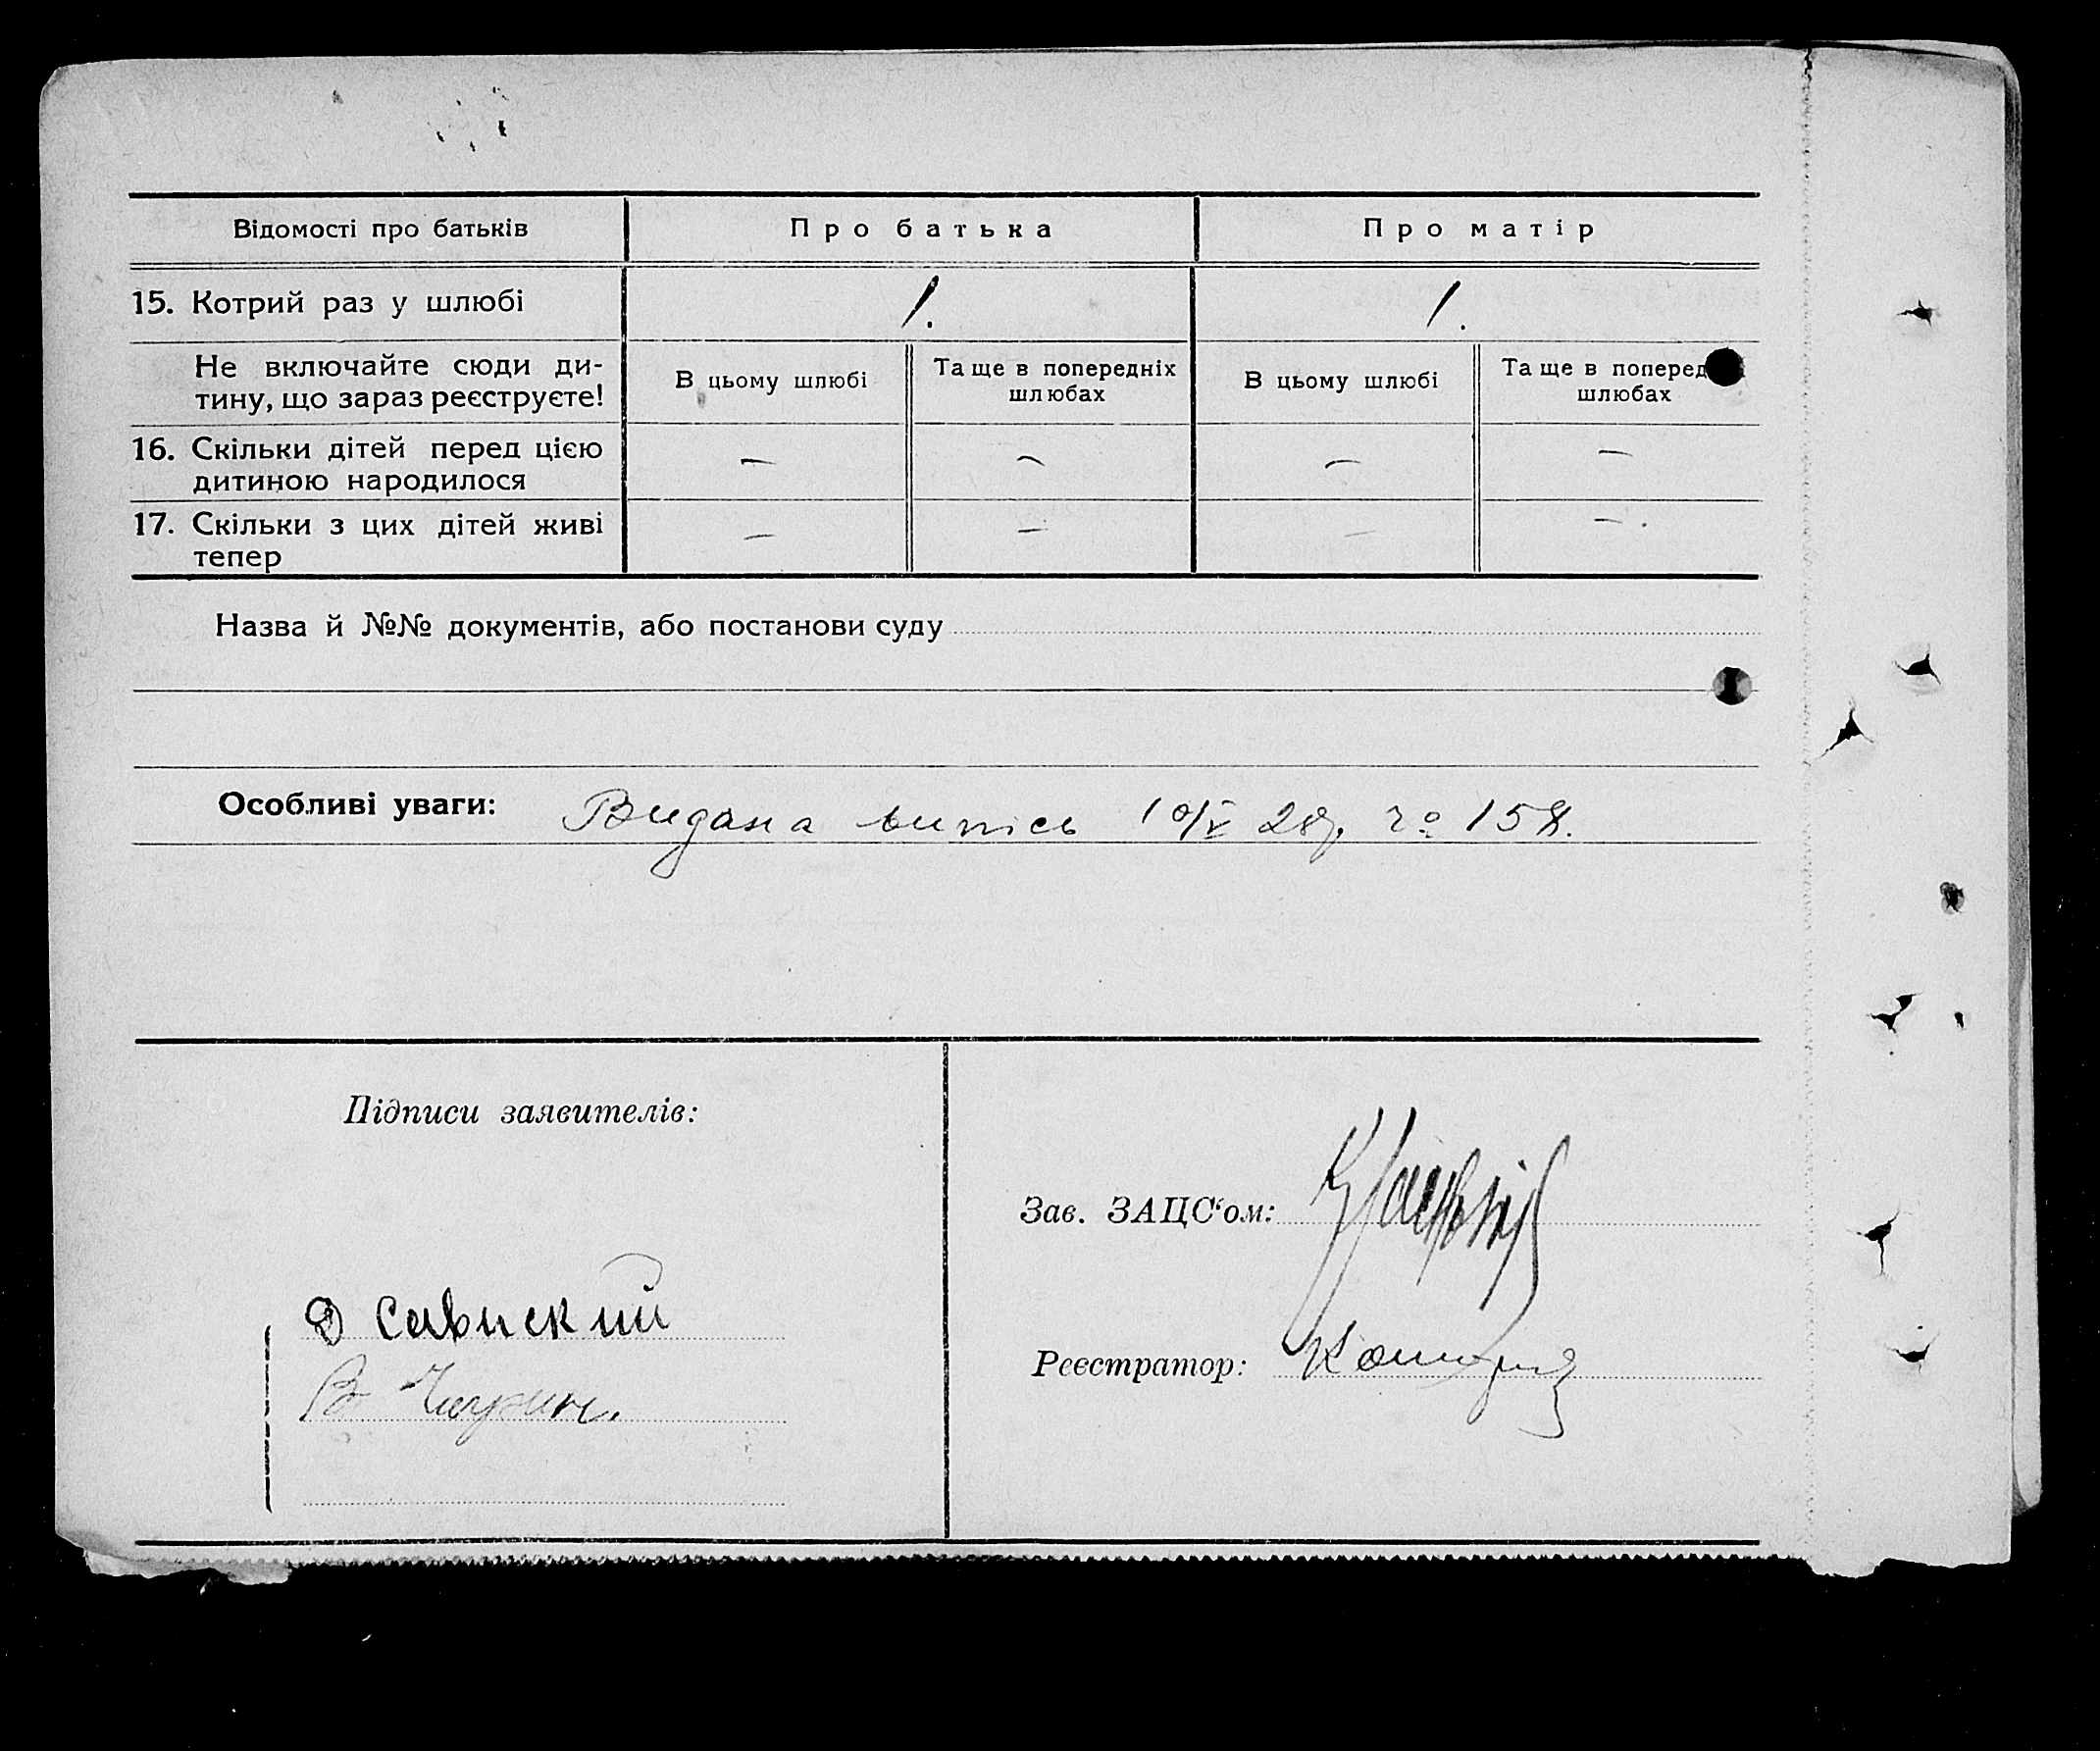 Відомості про батьків Про батька Про матір
15. Котрий раз у шлюбі 1. 1.
Не включайте сюди ди-
тину, що зараз реєструєте!
В цьому шлюбі Та ще в попередніх
шлюбах
В цьому шлюбі Та ще в поперед
шлюбах
16. Скільки дітей перед цією
дитиною народилося
— — — —
17. Скільки з цих дітей живі
тепер
— — — —
Назва й №№ документів, або постанови суду
Особливі уваги: Видана випись 10/V 28р. 158.
Підписи заявителів:
Зав. ЗАЦС'ом:
Д Савиский
Реєстратор:
В